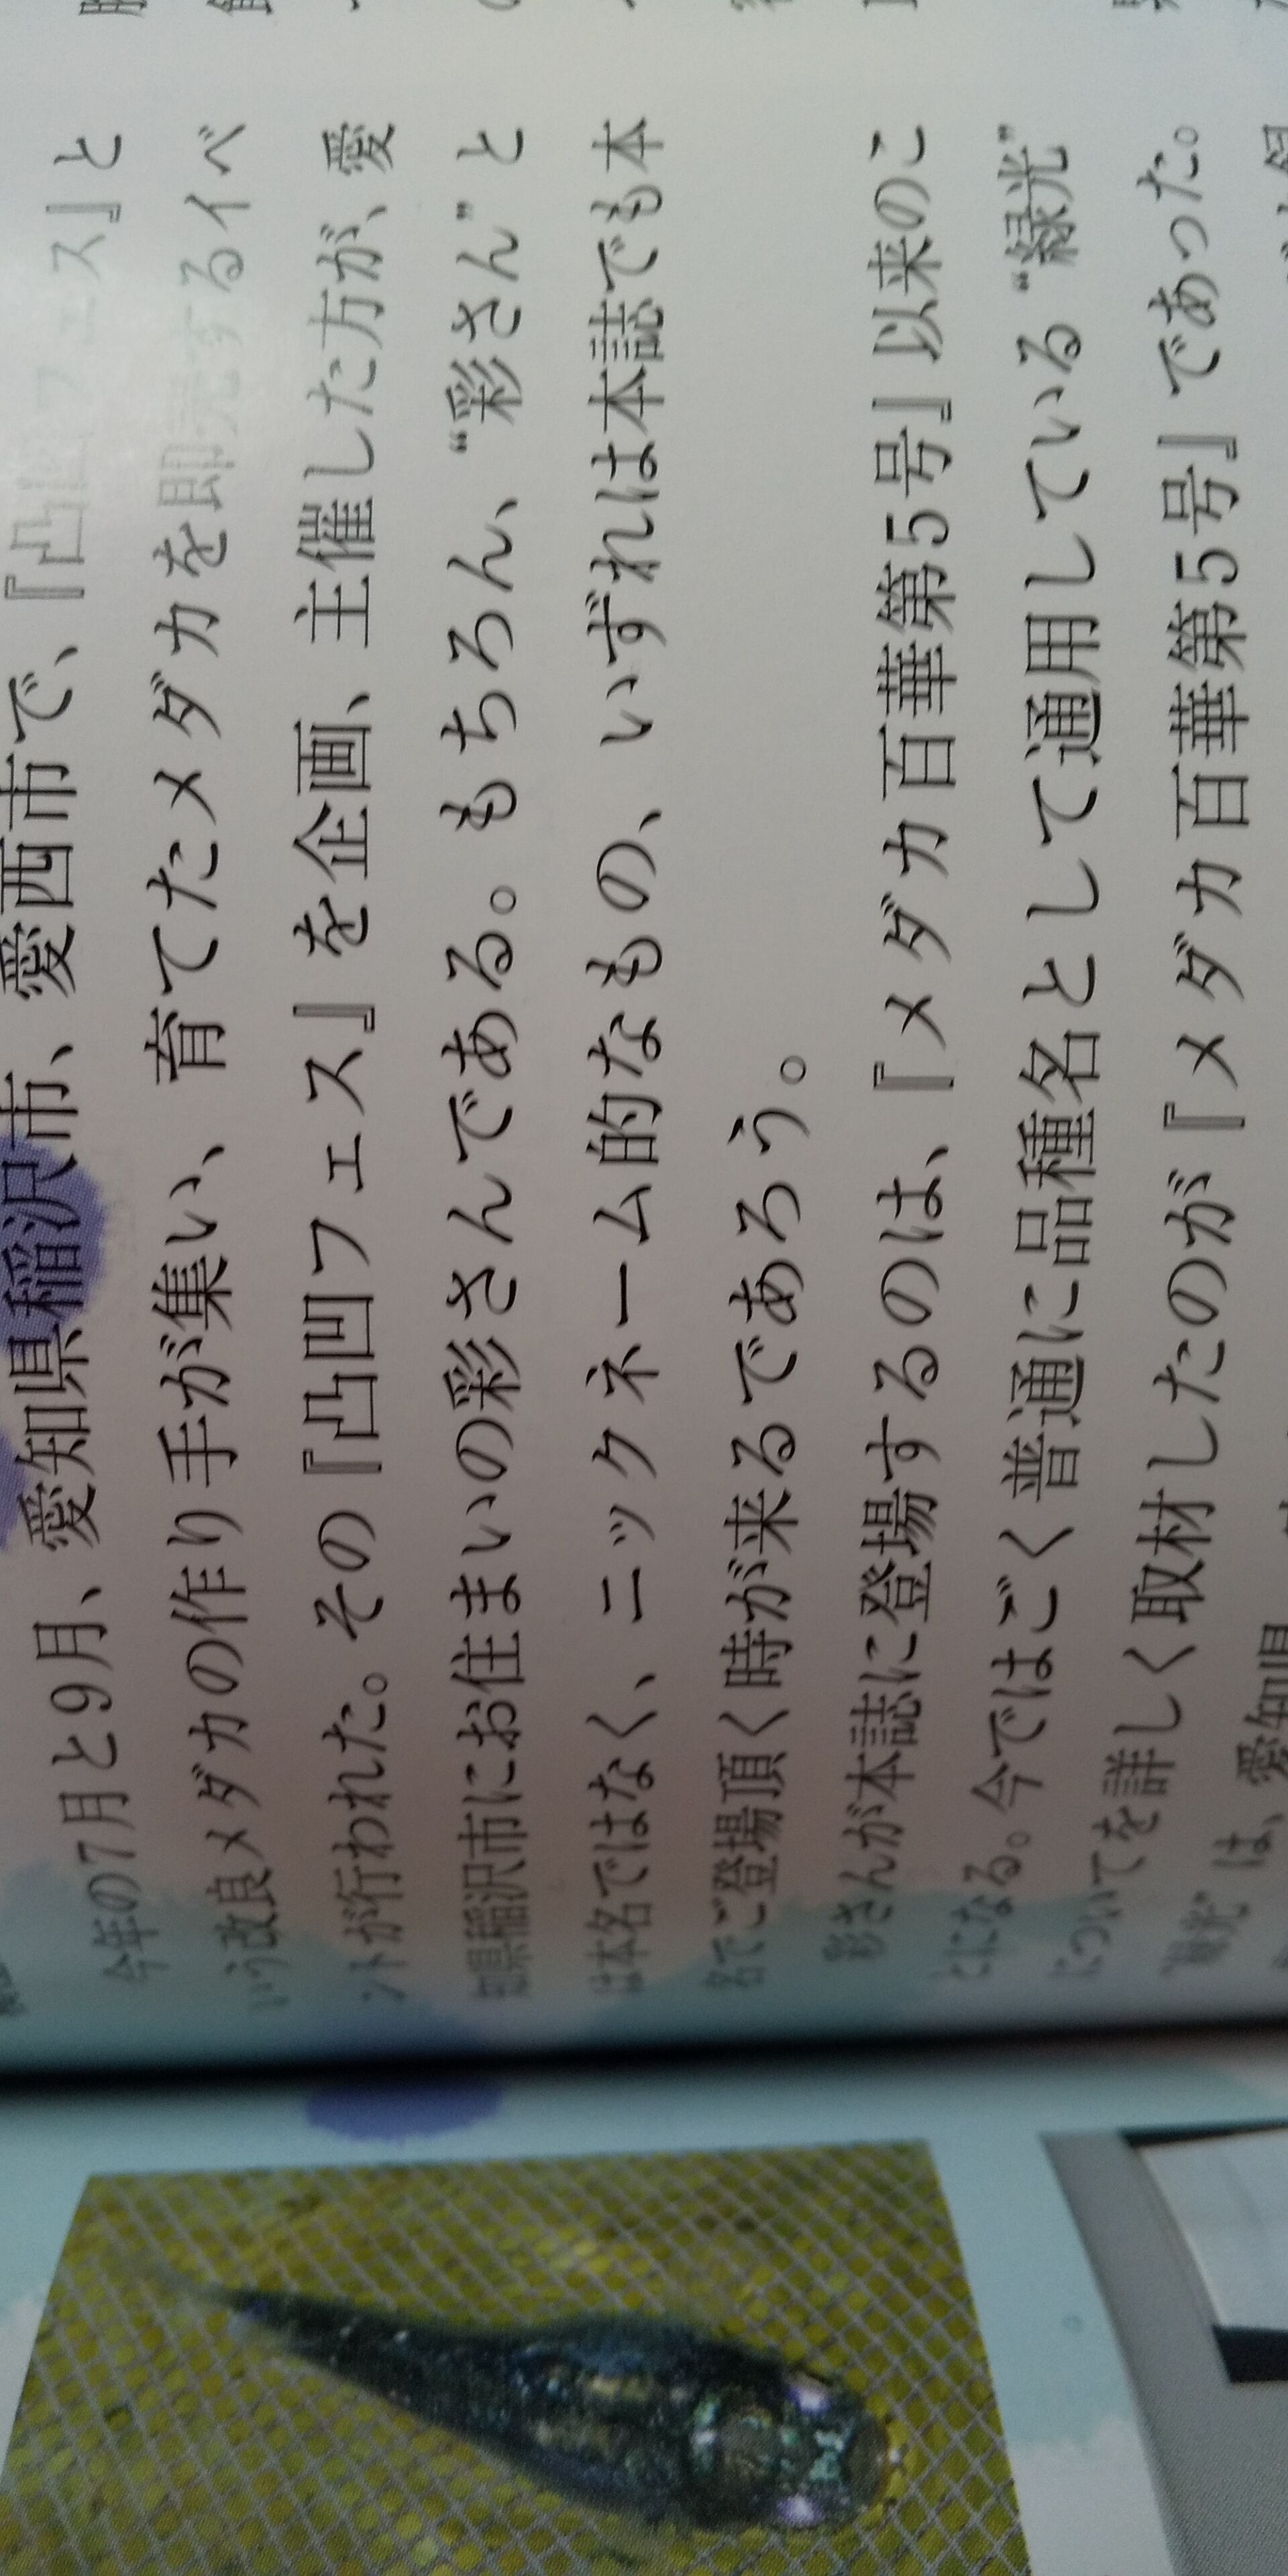 今年の7月と9月、愛知県稲沢市、愛西市で、『凸凹フェス』と
いう改良メダカの作り手が集い、育てたメダカを即売するイベ
ントが行われた。その『凸凹フェス』を企画、主催した方が、愛
知県稲沢市にお住まいの彩さんである。もちろん、“彩さん”と
は本名ではなく、ニックネーム的なものの、いずれは本誌でも本
名でご登場頂く時が来るであろう。
彩さんが本誌に登場するのは、『メダカ百華第5号』以来のこ
とになる。今ではごく普通に品種名として通用している“緑光”
についてを詳しく取材したのが『メダカ百華第5号』であった。
“緑光”は、愛知県